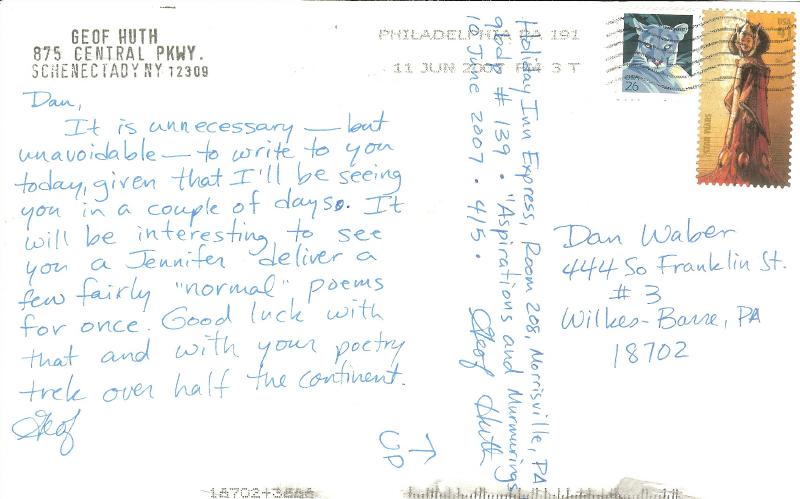 GEOF HUTH
875 CENTRAL PKWY.
SCHENECTADY NY 12309
PHILADELPHIA PA 191
11 JUN 2007 PM 3 T
USA
26
USA
41
STAR WARS
Dan,
It is unnecessary — but
unavoidable — to write to you
today, given that I'll be seeing
you in a couple of days. It
will be interesting to see
you a Jennifer deliver a
few fairly "normal" poems
for once. Good luck with
that and with your poetry
trek over half the continent.
Geof
UP
Holiday Inn Express, Room 208, Morrisville, PA
qþidþ # 139 • "Aspirations and Murmurings
10 June 2007 • 4/5 •
Geof Huth
Dan Waber
444 So Franklin St.
# 3
Wilkes-Barre, PA
18702
18702+3886